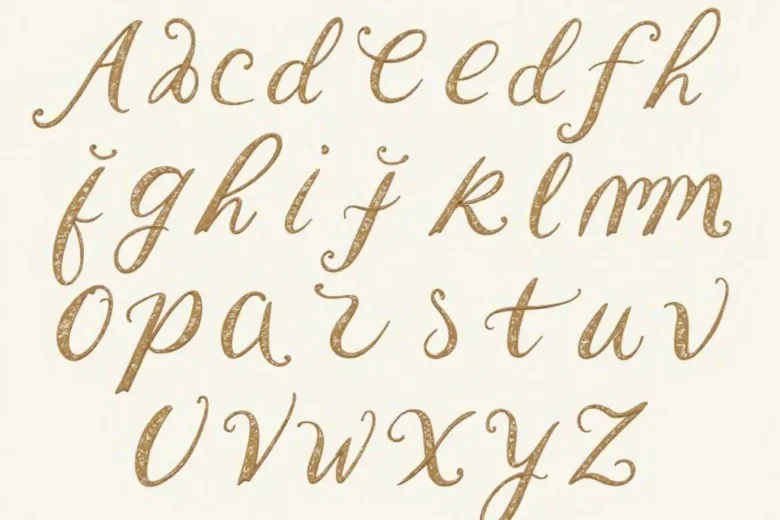 A c d e e d f h
g h i j k l m m
O p a s t u v
U V w X y Z